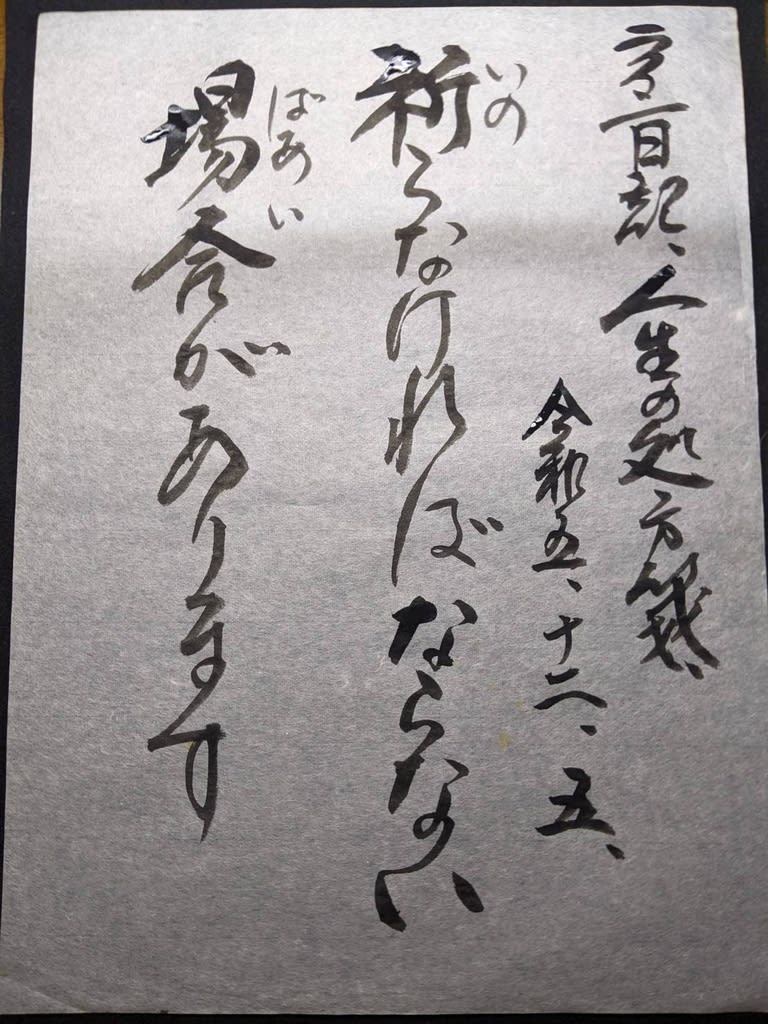 日記、人生の処方箋、
令和五、十二、五、
いの
祈らなければならない
ばあい
場合があります